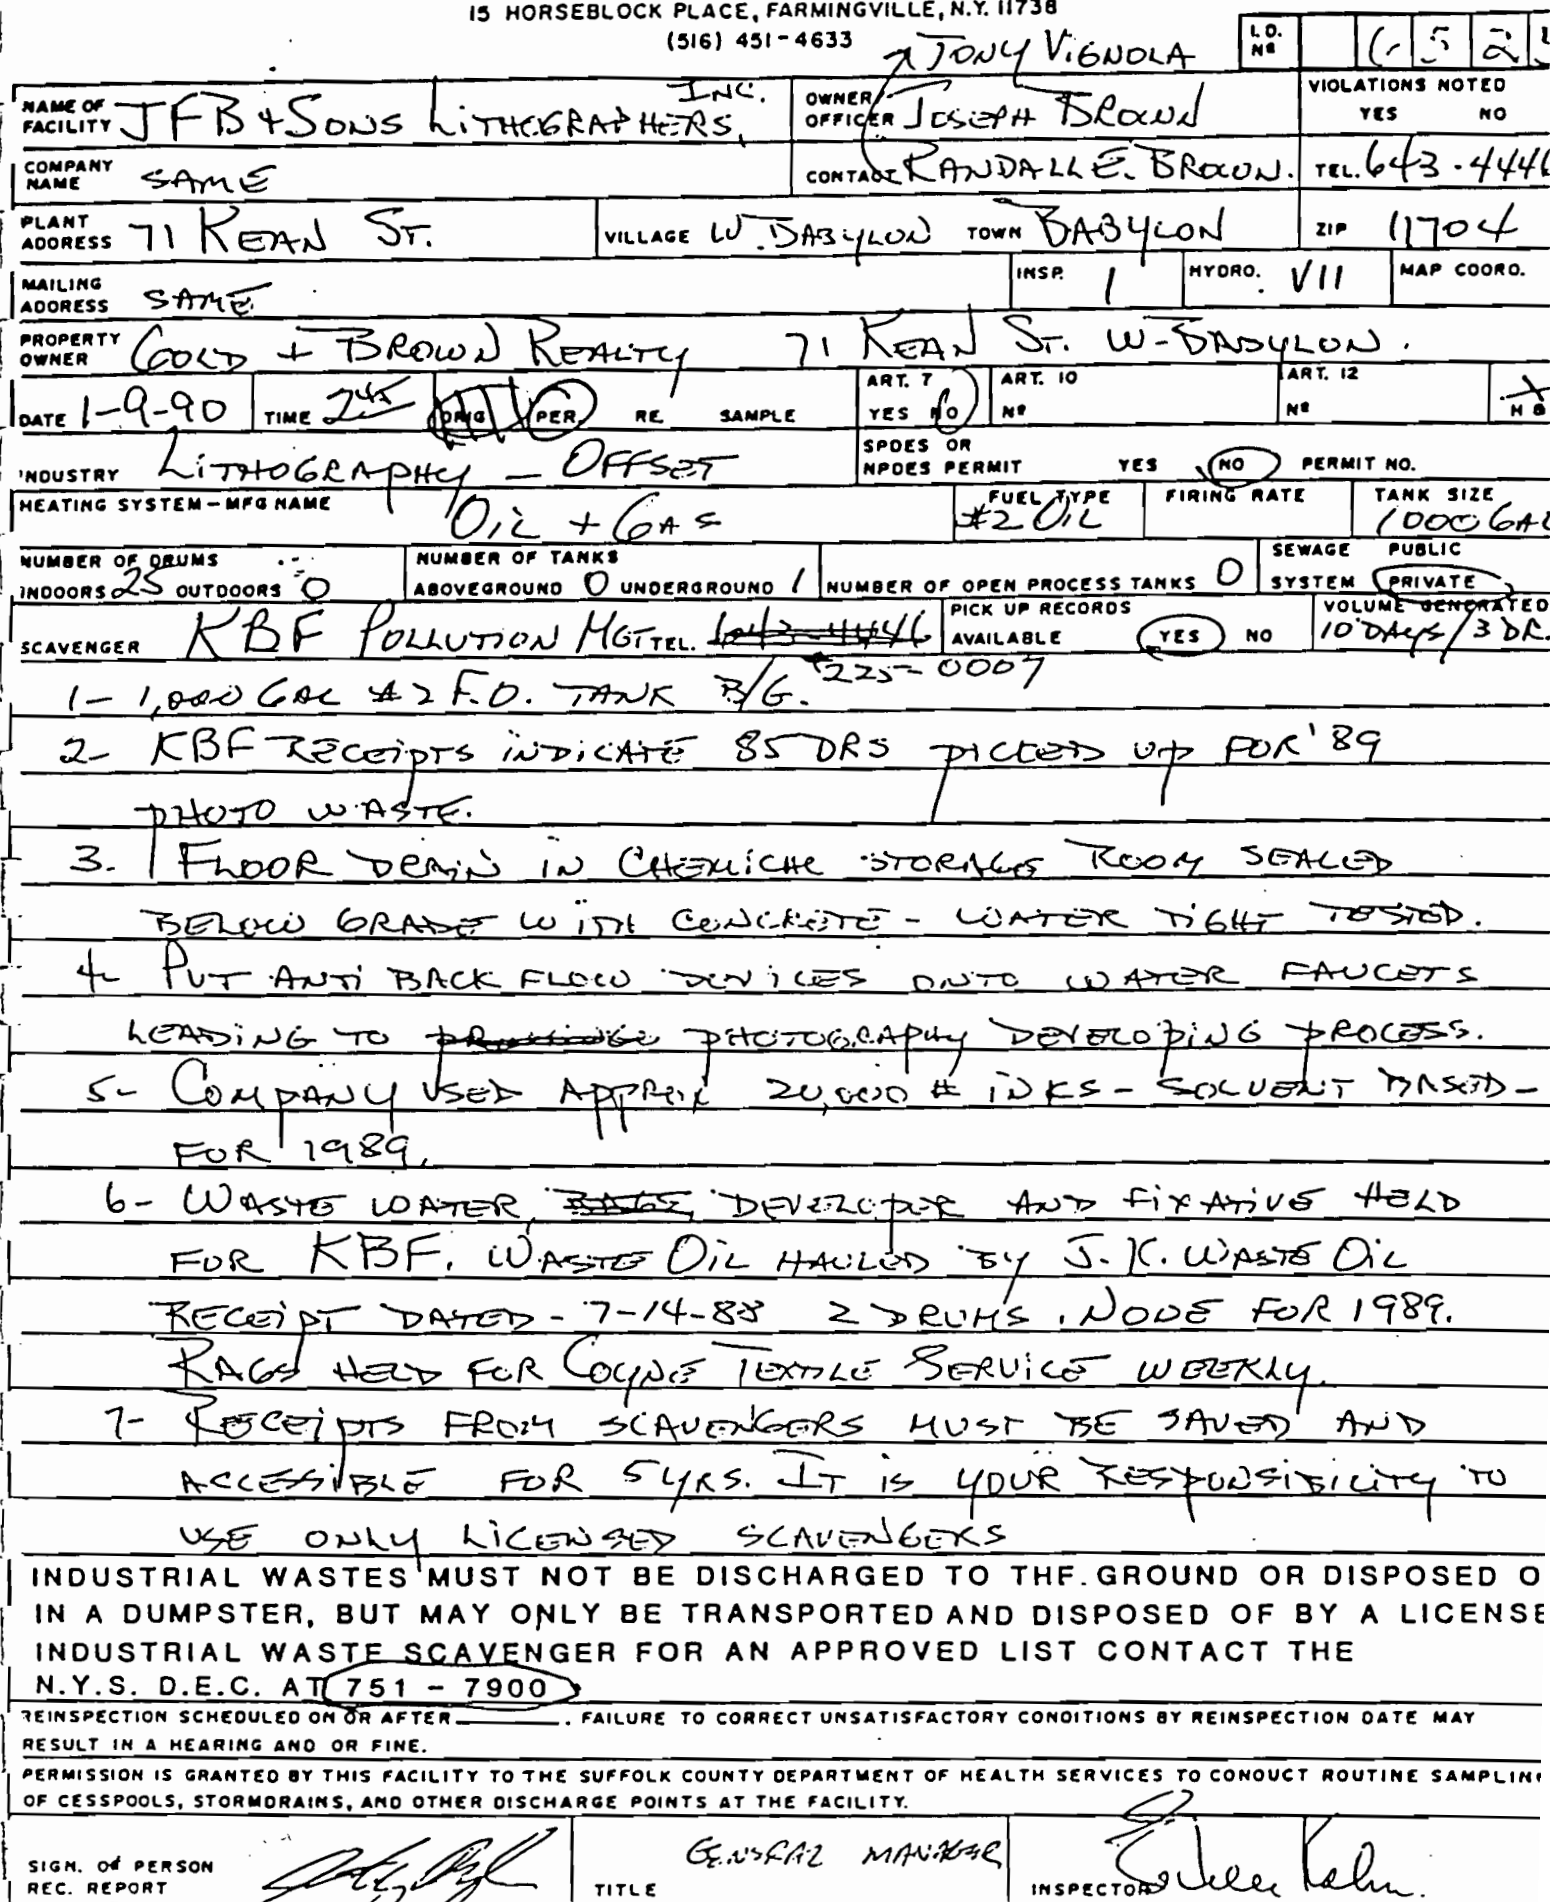 15 HORSEBLOCK PLACE, FARMINGVILLE, N.Y. 11738
(516) 451-4633
TONY VIGNOLA
I.D. Nº 5 2
NAME OF FACILITY JFB & SONS LITHOGRAPHERS, INC. OWNER/ OFFICER JOSEPH BROWN VIOLATIONS NOTED YES NO
COMPANY NAME SAME CONTACT RANDALL E. BROWN. TEL. 643-444
PLANT ADDRESS 71 KEAN ST. VILLAGE W. BABYLON TOWN BABYLON ZIP 11704
MAILING ADDRESS SAME INSP. 1 HYDRO. VII MAP COORD.
PROPERTY OWNER GOLD + BROWN REALTY 71 KEAN ST. W-BABYLON.
DATE 1-9-90 TIME 245 ORIG PER RE. SAMPLE ART. 7 YES NO ART. 10 Nº ART. 12 Nº
INDUSTRY LITHOGRAPHY - OFFSET SPDES OR NPDES PERMIT YES NO PERMIT NO.
HEATING SYSTEM-MFG NAME OIL + GAS FUEL TYPE #2 OIL FIRING RATE TANK SIZE 1000 GAL
NUMBER OF DRUMS INDOORS 25 OUTDOORS 0 NUMBER OF TANKS ABOVEGROUND 0 UNDERGROUND 1 NUMBER OF OPEN PROCESS TANKS 0 SEWAGE SYSTEM PUBLIC PRIVATE
SCAVENGER KBF POLLUTION MGT TEL. 643-4446 225-0007 PICK UP RECORDS AVAILABLE YES NO VOLUME GENERATED 10 DAYS/3 DR.
1- 1,000 GAL #2 F.O. TANK B/G.
2- KBF RECEIPTS INDICATE 85 DRS PICKED UP FOR '89
PHOTO WASTE.
3. FLOOR DRAIN IN CHEMICAL STORAGE ROOM SEALED
BELOW GRADE WITH CONCRETE - WATER TIGHT TESTED.
4- PUT ANTI BACK FLOW DEVICES ONTO WATER FAUCETS
LEADING TO PHOTOGRAPHY DEVELOPING PROCESS.
5- COMPANY USED APPROX 20,000 # INKS - SOLVENT BASED -
FOR 1989.
6- WASTE WATER, DEVELOPER AND FIXATIVE HELD
FOR KBF. WASTE OIL HAULED BY J.K. WASTE OIL
RECEIPT DATED - 7-14-88 2 DRUMS. NONE FOR 1989.
RAGS HELD FOR COYNE TEXTILE SERVICE WEEKLY.
7- RECEIPTS FROM SCAVENGERS MUST BE SAVED AND
ACCESSIBLE FOR 5 YRS. IT IS YOUR RESPONSIBILITY TO
USE ONLY LICENSED SCAVENGERS
INDUSTRIAL WASTES MUST NOT BE DISCHARGED TO THE GROUND OR DISPOSED O
IN A DUMPSTER, BUT MAY ONLY BE TRANSPORTED AND DISPOSED OF BY A LICENSE
INDUSTRIAL WASTE SCAVENGER FOR AN APPROVED LIST CONTACT THE
N.Y.S. D.E.C. AT 751 - 7900
REINSPECTION SCHEDULED ON OR AFTER ________. FAILURE TO CORRECT UNSATISFACTORY CONDITIONS BY REINSPECTION DATE MAY
RESULT IN A HEARING AND OR FINE.
PERMISSION IS GRANTED BY THIS FACILITY TO THE SUFFOLK COUNTY DEPARTMENT OF HEALTH SERVICES TO CONDUCT ROUTINE SAMPLIN
OF CESSPOOLS, STORMDRAINS, AND OTHER DISCHARGE POINTS AT THE FACILITY.
SIGN. of PERSON REC. REPORT TITLE GENERAL MANAGER INSPECTOR